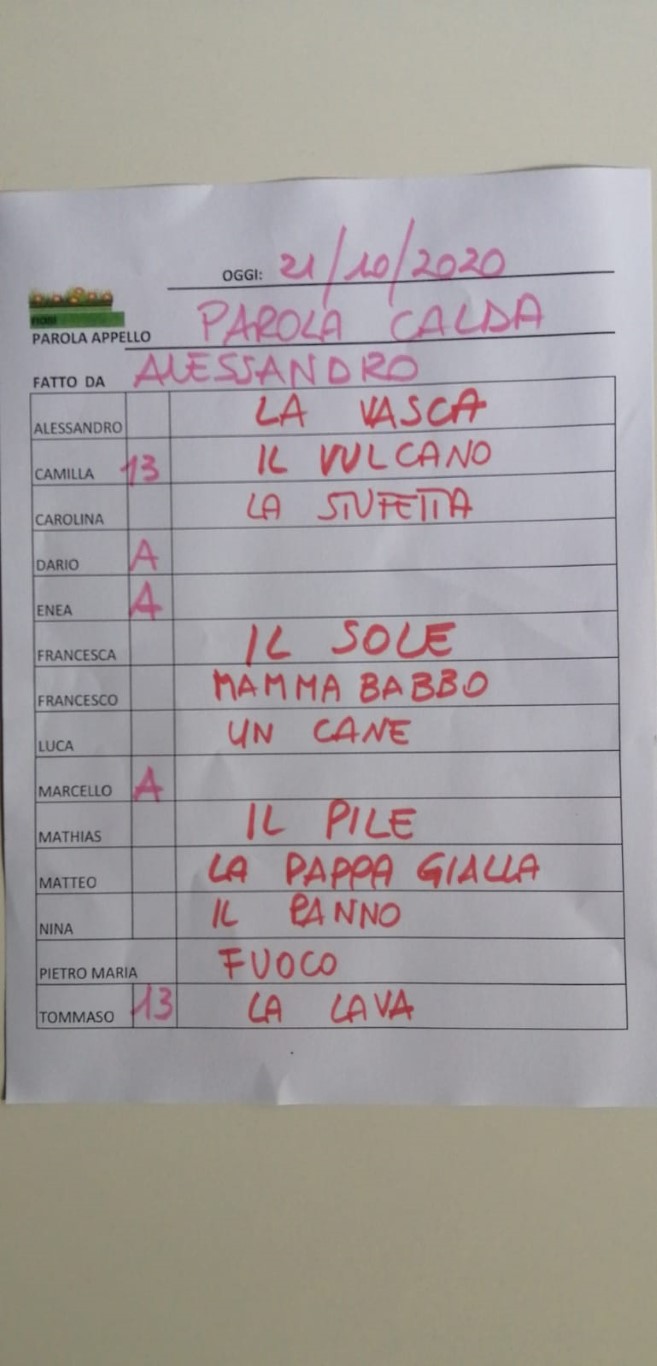 OGGI: 21/10/2020
FIORI
PAROLA APPELLO PAROLA CALDA
FATTO DA ALESSANDRO
ALESSANDRO LA VASCA
CAMILLA 13 IL VULCANO
CAROLINA LA STUFETTA
DARIO A
ENEA A
FRANCESCA IL SOLE
FRANCESCO MAMMA BABBO
LUCA UN CANE
MARCELLO A
MATHIAS IL PILE
MATTEO LA PAPPA GIALLA
NINA IL PANNO
PIETRO MARIA FUOCO
TOMMASO 13 LA LAVA